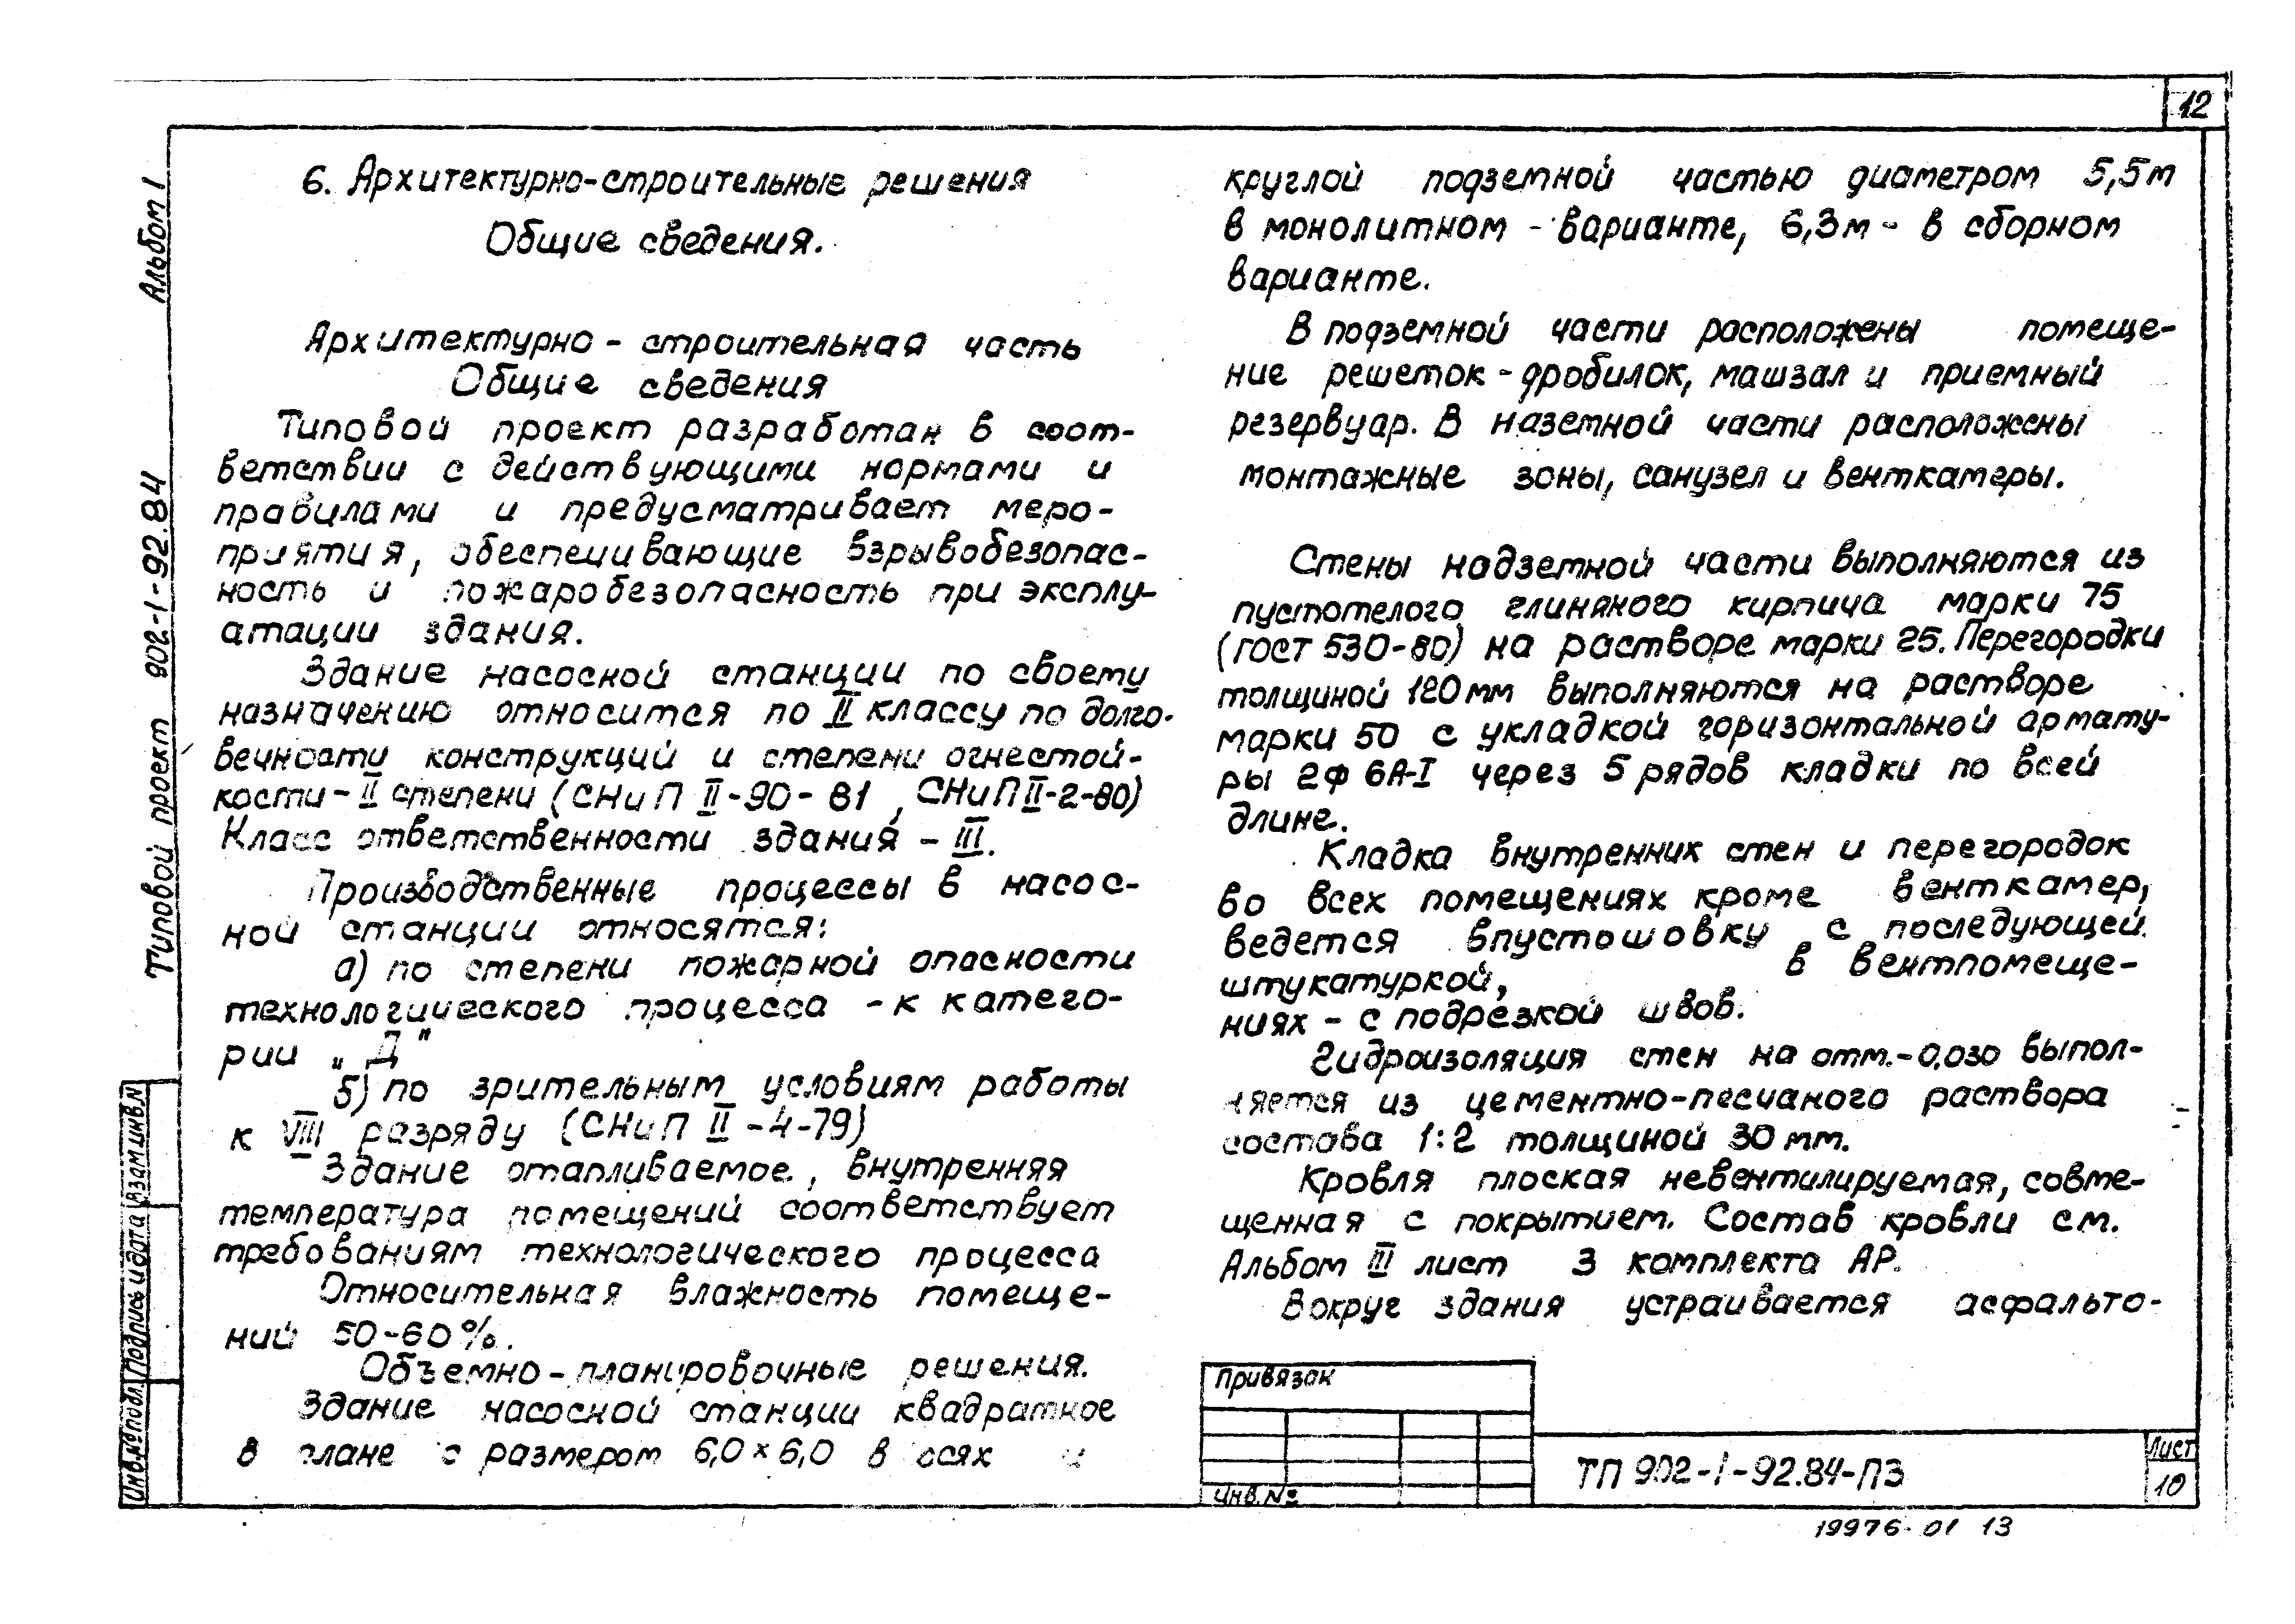 12
Альбом I
Типовой проект 902-1-92.84
6. Архитектурно-строительные решения
Общие сведения.
Архитектурно-строительная часть
Общие сведения
Типовой проект разработан в соот-
ветствии с действующими нормами и
правилами и предусматривает меро-
приятия, обеспечивающие взрывобезопас-
ность и пожаробезопасность при эксплу-
атации здания.
Здание насосной станции по своему
назначению относится по II классу по долго-
вечности конструкций и степени огнестой-
кости - II степени (СНиП II-90-81, СНиП II-2-80)
Класс ответственности здания - III.
Производственные процессы в насос-
ной станции относятся:
а) по степени пожарной опасности
технологического процесса - к катего-
рии „Д"
б) по зрительным условиям работы
к VIII разряду (СНиП II-4-79)
Здание отапливаемое, внутренняя
температура помещений соответствует
требованиям технологического процесса
Относительная влажность помеще-
ний 50-60%.
Объемно-планировочные решения.
Здание насосной станции квадратное
в плане с размером 6,0×6,0 в осях и
круглой подземной частью диаметром 5,5м
в монолитном - варианте, 6,3м - в сборном
варианте.
В подземной части расположены помеще-
ние решеток-дробилок, машзал и приемный
резервуар. В наземной части расположены
монтажные зоны, санузел и венткамеры.
Стены надземной части выполняются из
пустотелого глиняного кирпича марки 75
(ГОСТ 530-80) на растворе марки 25. Перегородки
толщиной 120мм выполняются на растворе
марки 50 с укладкой горизонтальной армату-
ры 2ф 6А-I через 5 рядов кладки по всей
длине.
Кладка внутренних стен и перегородок
во всех помещениях кроме венткамер,
ведется впустошовку с последующей
штукатуркой, в вентпомеще-
ниях - с подрезкой швов.
Гидроизоляция стен на отм.-0,030 выпол-
няется из цементно-песчаного раствора
состава 1:2 толщиной 30мм.
Кровля плоская невентилируемая, совме-
щенная с покрытием. Состав кровли см.
Альбом III лист 3 комплекта АР.
Вокруг здания устраивается асфальто-
Привязан
Инв.№
ТП 902-1-92.84-ПЗ
Лист
10
Инв.№подл.
Подпись и дата
Взам.инв.N
19976-01 13